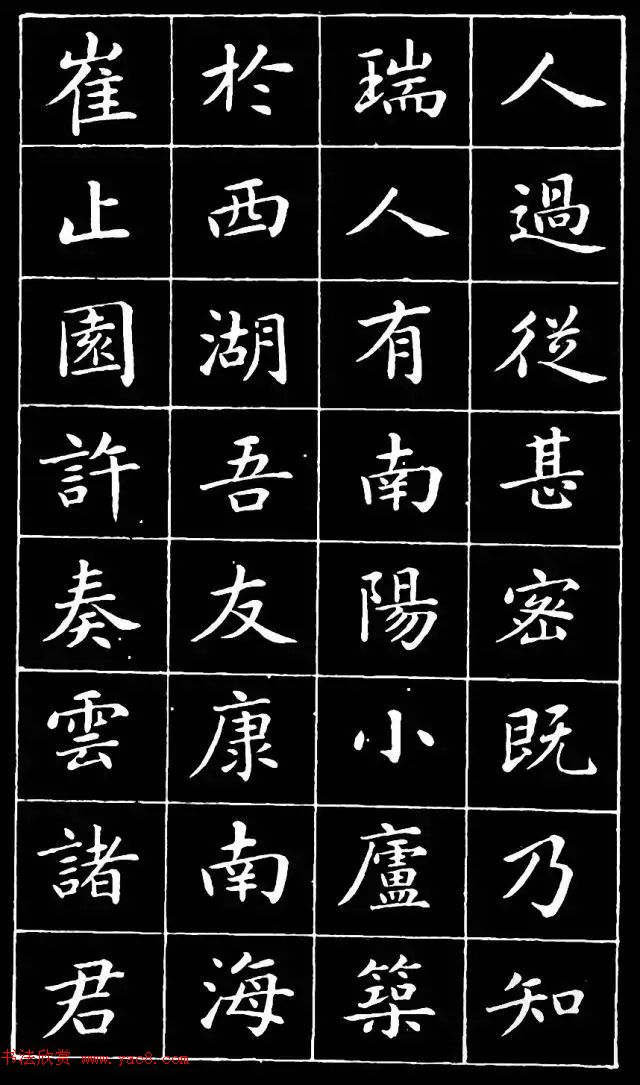 人過從甚密既乃知
瑞人有南陽小廬築
於西湖吾友康南海
崔止園許奏雲諸君
书法欣赏 www.yac8.com